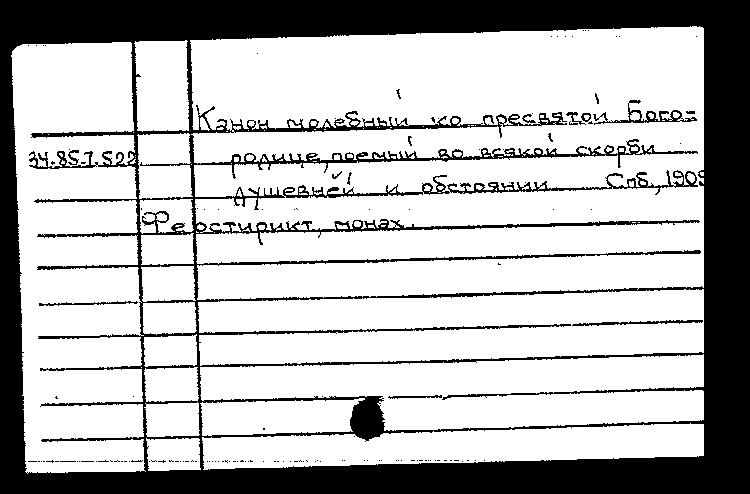 Канон молебный ко пресвятой Бого-
34.85.7.522 родице, поемый во всякой скорби
душевней и обстоянии Спб., 1909
Феостирикт, монах.